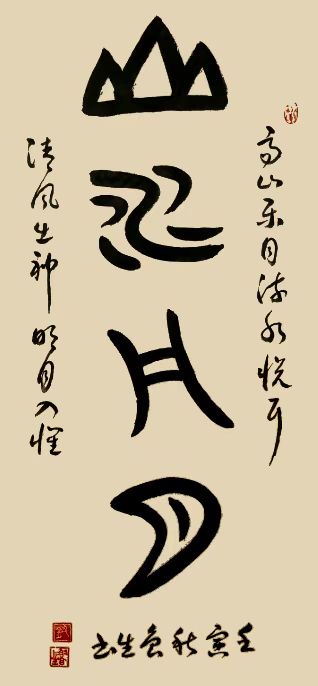 山水凡月
高山乐目流水悦耳
清风出神明月入怀
壬寅秋生书